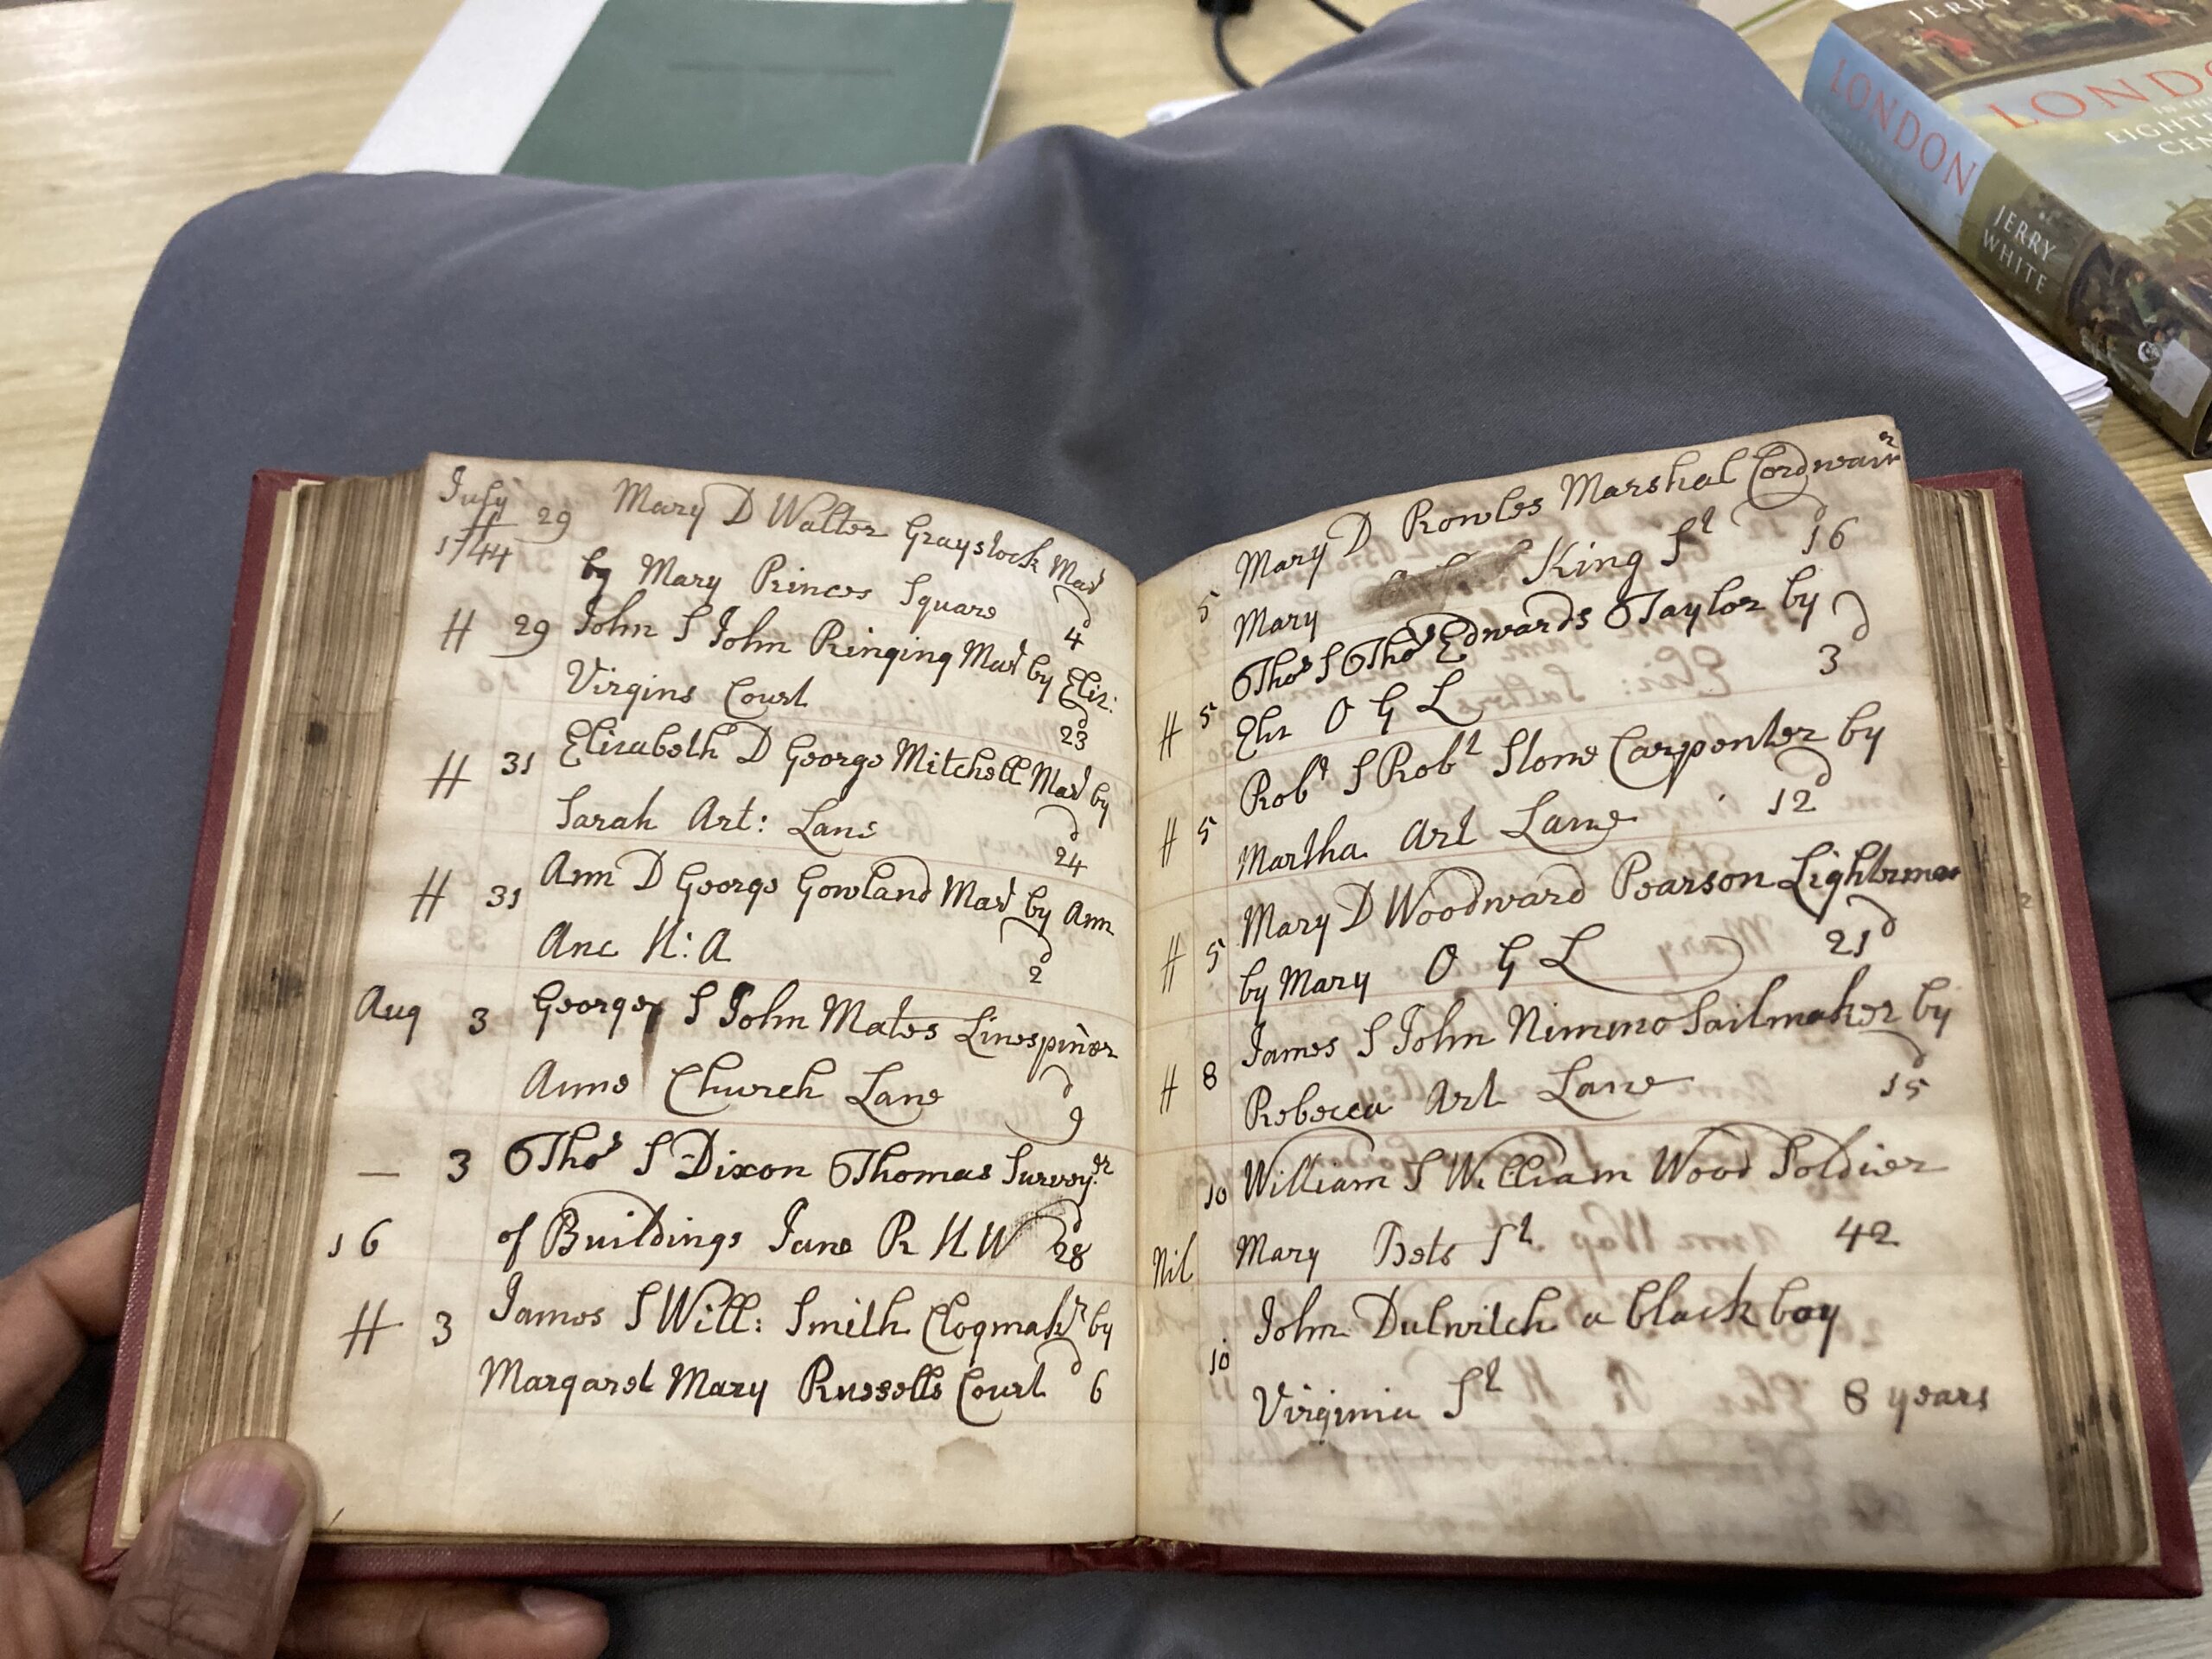 JERRY
LONDON
JERRY WHITE
LONDO
IN THE
EIGHT
CEN
July 29 Mary D Walter Graystock Marr
1744
by Mary Princes Square 4d
H 29 John S John Ringing Marr by Eliz:
Virgins Court 23d
H 31 Elizabeth D George Mitchell Marr by
Sarah Art: Lane 24d
H 31 Ann D George Gowland Marr by Ann
Anc H: A 2d
Aug 3 George S John Mates Linespiner
Anne Church Lane 9d
— 3 Thos S Dixon Thomas Surveyr
16 of Buildings Jane R H W 28d
H 3 James S Will: Smith Clogmakr by
Margaret Mary Russells Court 6d
2
Mary D Rowles Marshal Cordwainr
5 Mary King St 16d
Thos S Thos Edwards Taylor by
H 5 Eliz O G L 3d
Robt S Robt Stone Carpenter by
H 5 Martha Art Lane 12d
Mary D Woodward Pearson Lighterman
H 5 by Mary O G L 21d
James S John Nimmo Sailmaker by
H 8 Rebecca Art Lane 15d
10 William S William Wood Soldier
Nil Mary Bets St 42
John Dulwitch a black boy
10 Virginia St 8 years